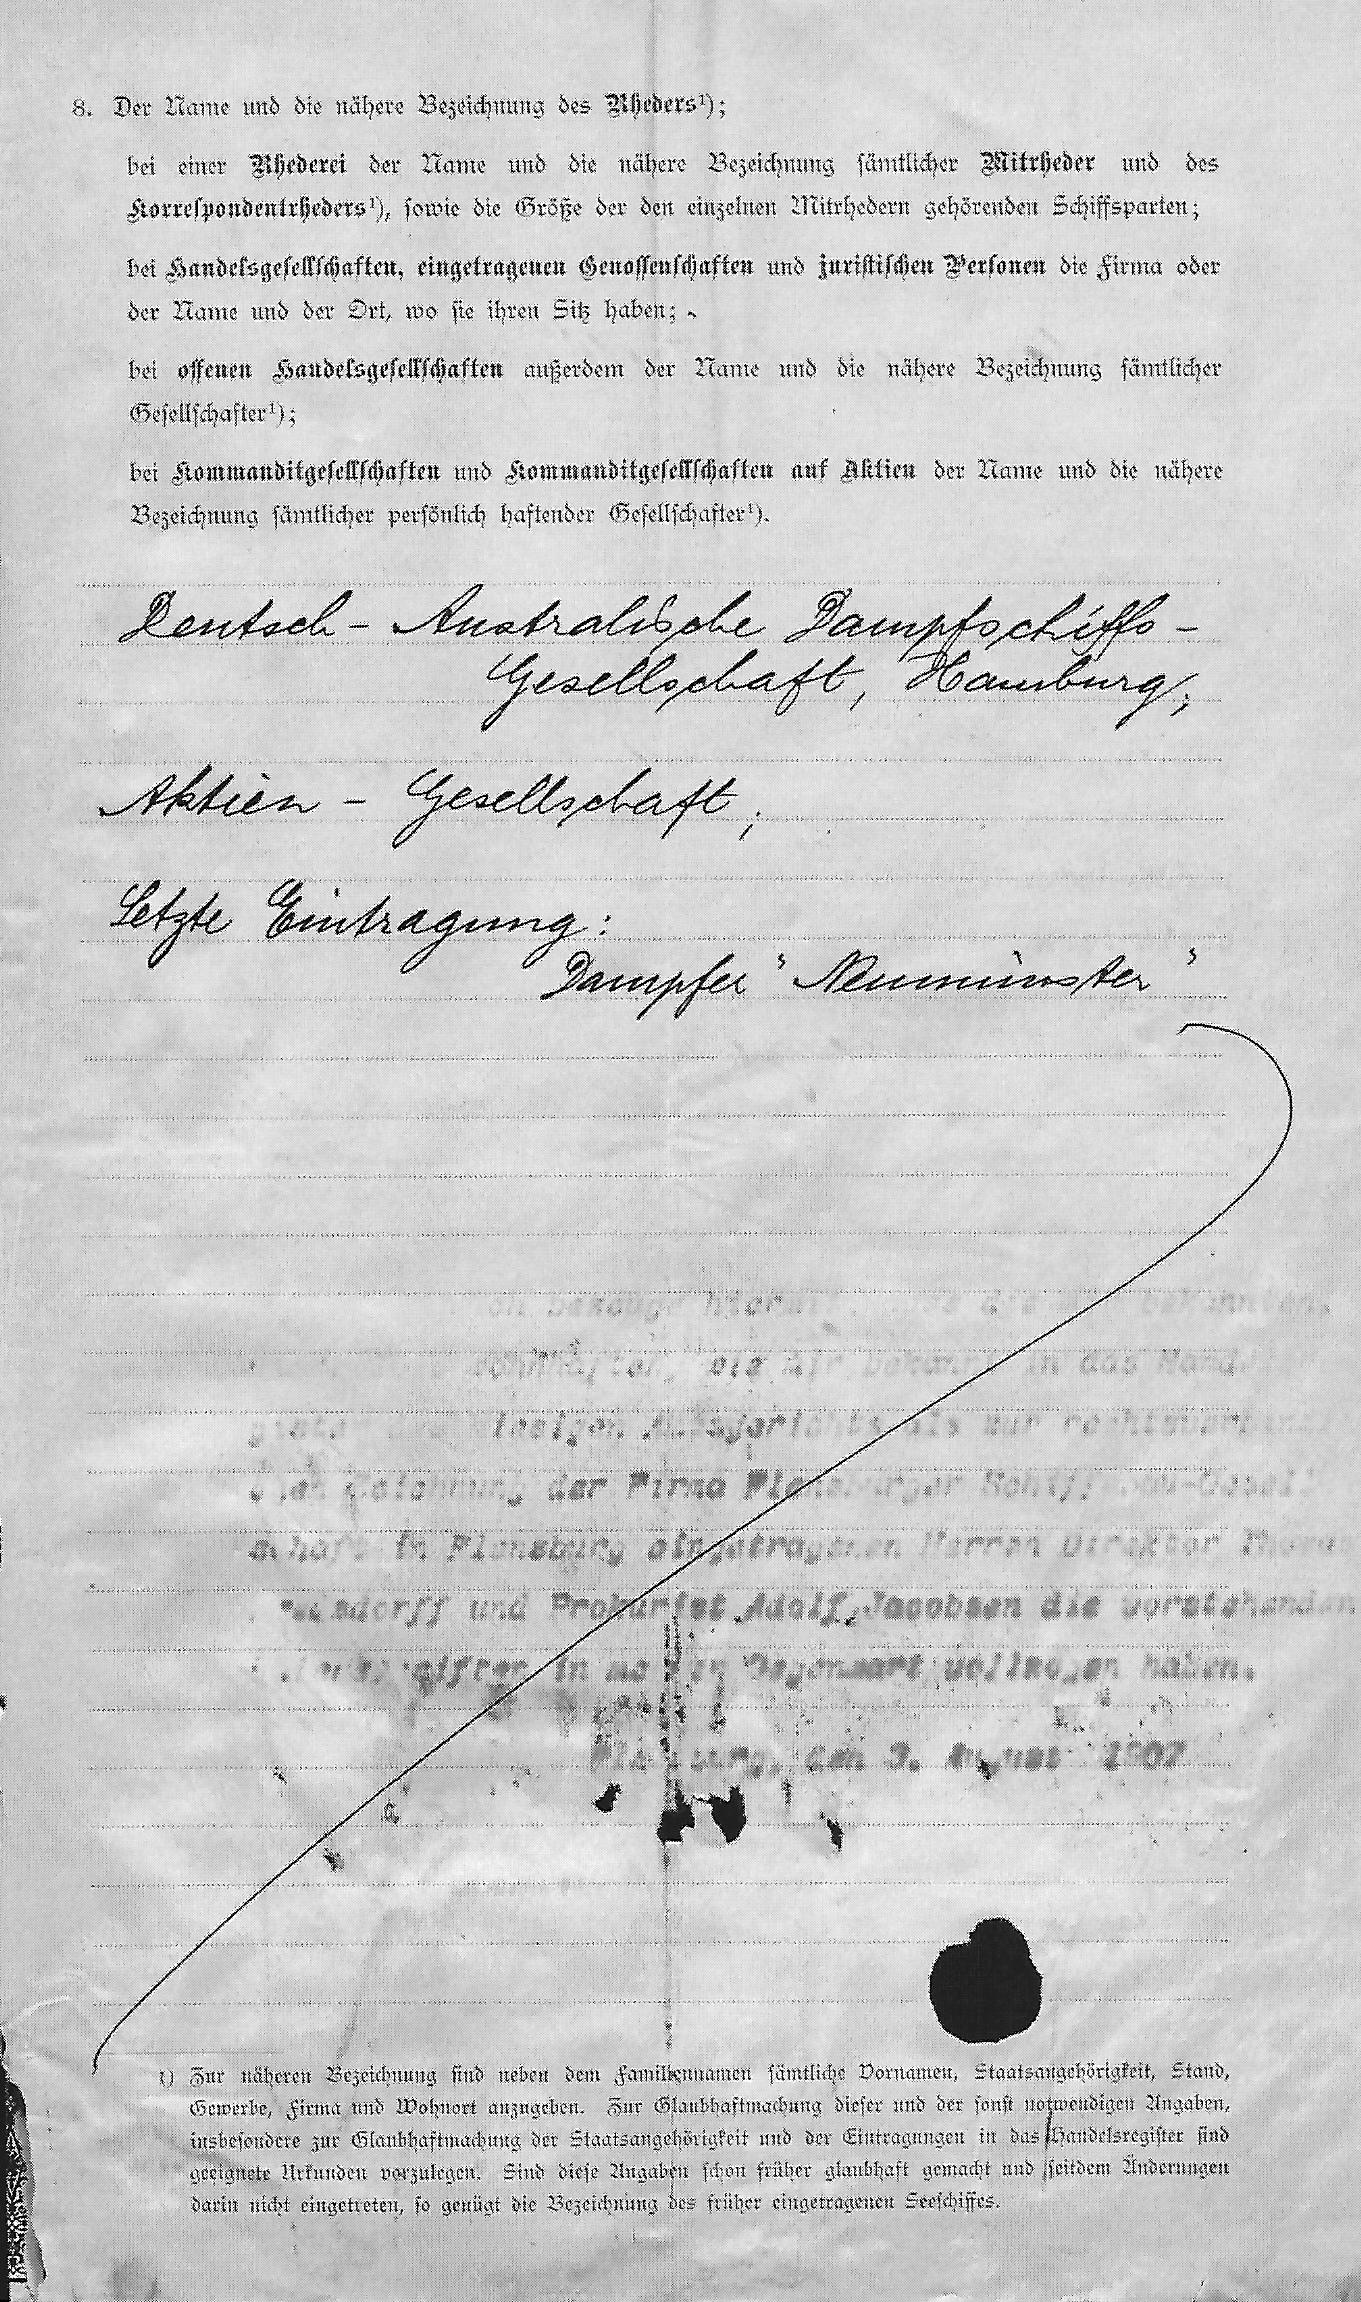 8. Der Name und die nähere Bezeichnung des Rheders¹);
bei einer Rhederei der Name und die nähere Bezeichnung sämtlicher Mitrheder und des
Korrespondentrheders¹), sowie die Größe der den einzelnen Mitrhedern gehörenden Schiffsparten;
bei Handelsgesellschaften, eingetragenen Genossenschaften und juristischen Personen die Firma oder
der Name und der Ort, wo sie ihren Sitz haben;
bei offenen Handelsgesellschaften außerdem der Name und die nähere Bezeichnung sämtlicher
Gesellschafter¹);
bei Kommanditgesellschaften und Kommanditgesellschaften auf Aktien der Name und die nähere
Bezeichnung sämtlicher persönlich haftender Gesellschafter¹).
Deutsch - Australische Dampfschiffs -
Gesellschaft, Hamburg;
Aktien - Gesellschaft;
Letzte Eintragung:
Dampfer "Neumünster"
hier bekannten
wie mir bekannt in das
hiesigen Amtsgerichts als zur
Zeichnung der Firma Flensburger Schiffsbau-Gesell
schaft in Flensburg eingetragenen Herren Direktor
und Prokurist Adolf Jacobsen die vorstehenden
in meiner Gegenwart vollzogen haben.
Flensburg, den 3. August 1907
¹) Zur näheren Bezeichnung sind neben dem Familiennamen sämtliche Vornamen, Staatsangehörigkeit, Stand,
Gewerbe, Firma und Wohnort anzugeben. Zur Glaubhaftmachung dieser und der sonst notwendigen Angaben,
insbesondere zur Glaubhaftmachung der Staatsangehörigkeit und der Eintragungen in das Handelsregister sind
geeignete Urkunden vorzulegen. Sind diese Angaben schon früher glaubhaft gemacht und seitdem Änderungen
darin nicht eingetreten, so genügt die Bezeichnung des früher eingetragenen Seeschiffes.